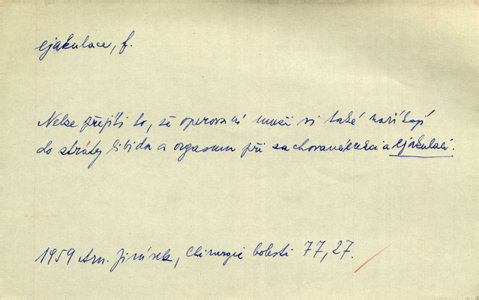 ejakulace, f.
Nelze přejíti to, že operovaní muži si také naříkají
do ztráty libida a orgasmu při zachované a ejakulaci.
1959 Arn. Jirásek, Chirurgie bolesti 77, 27.